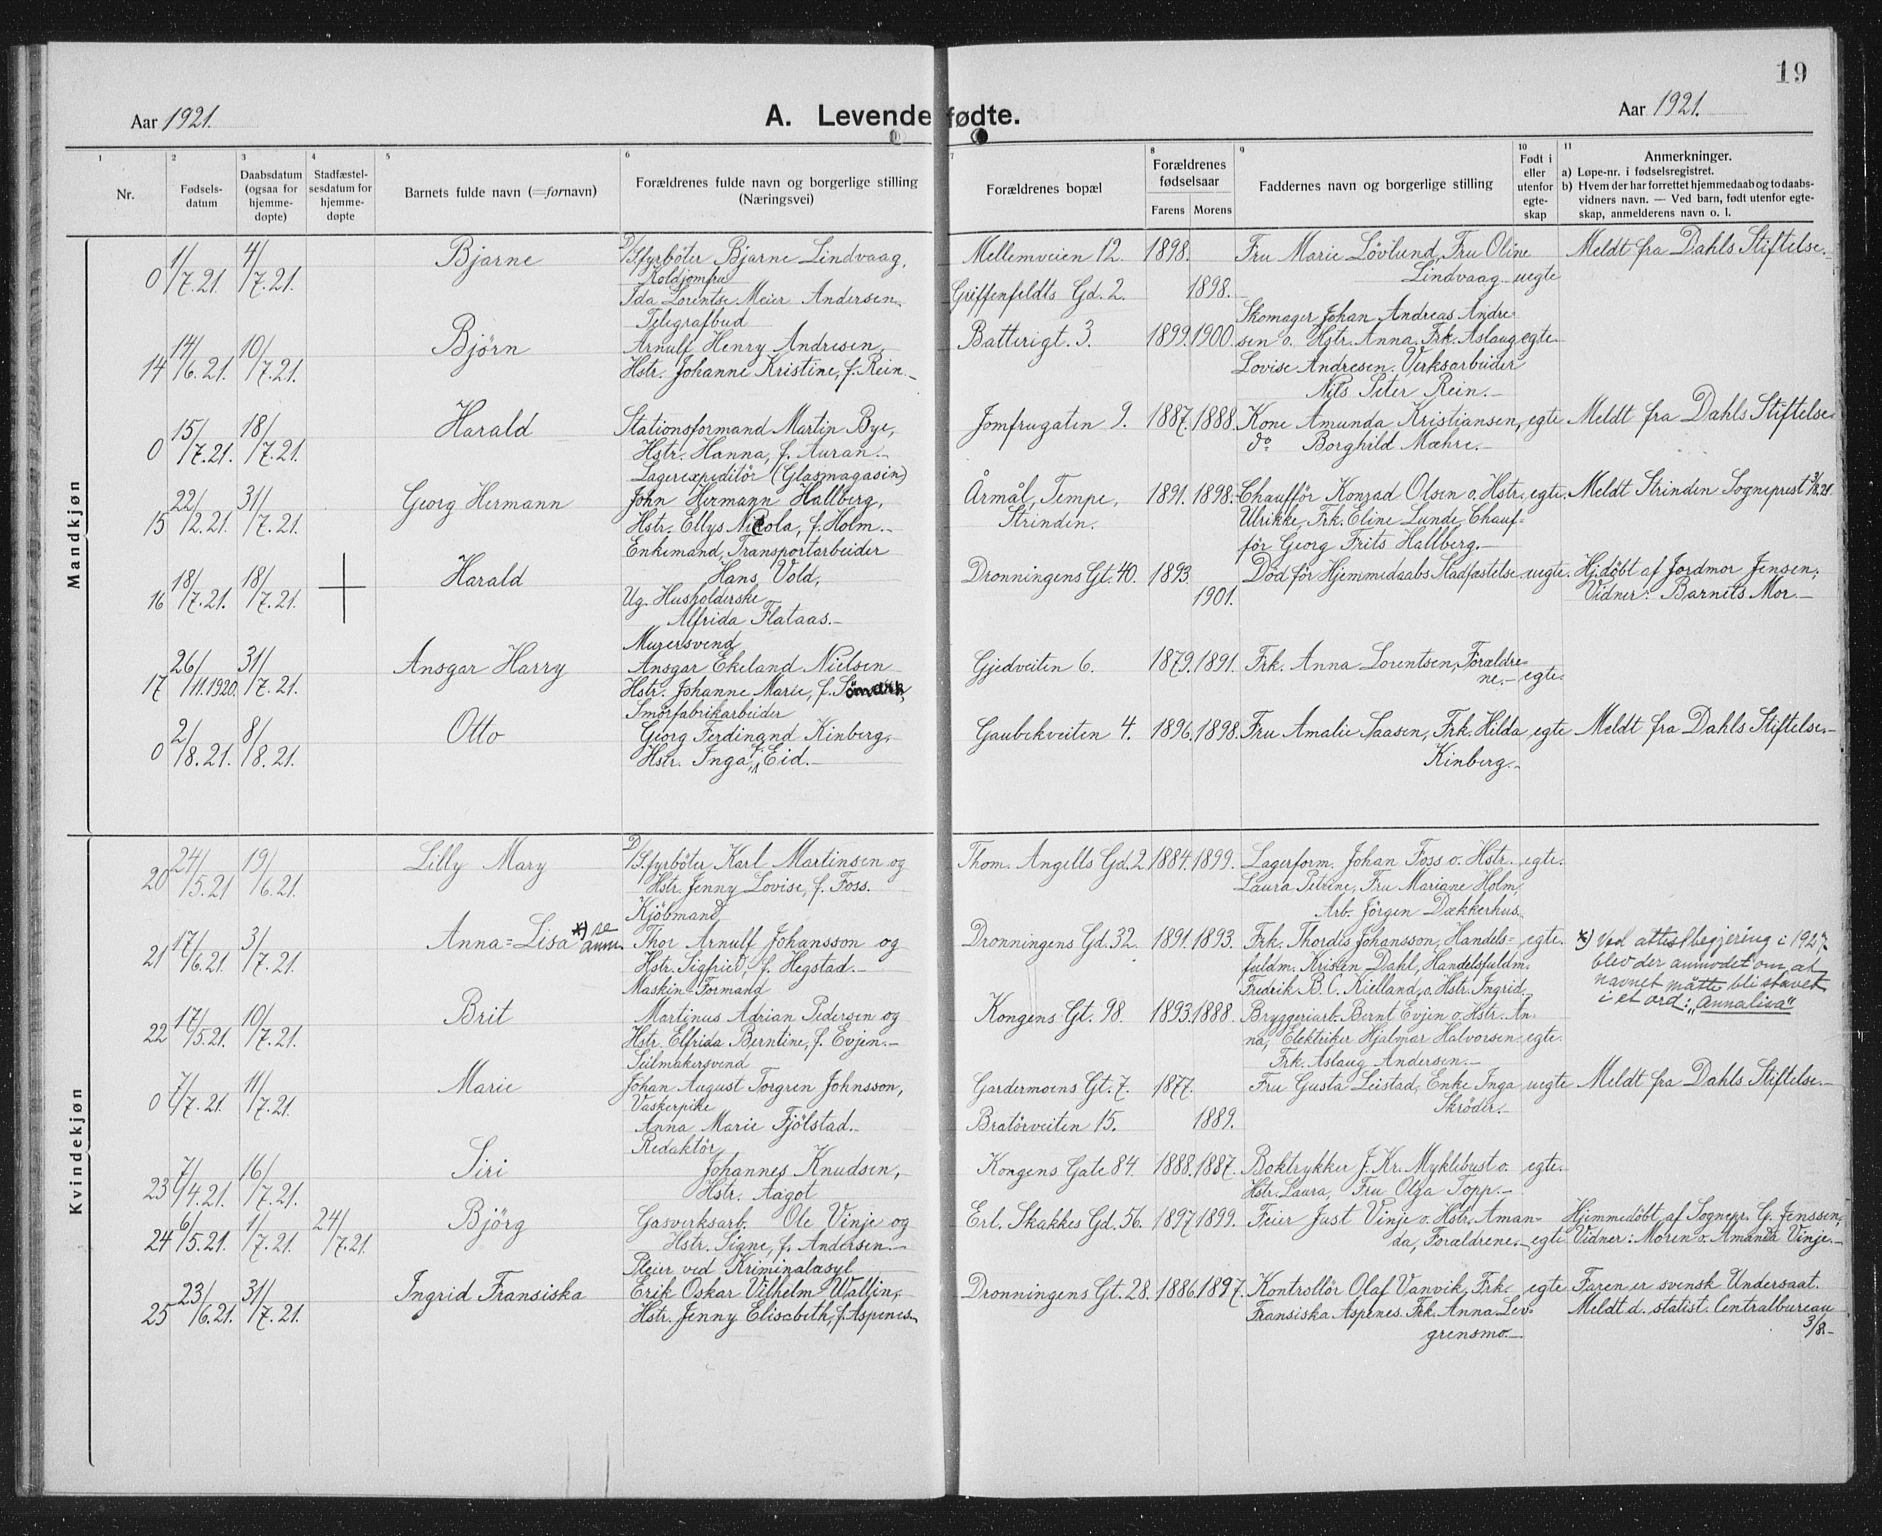 19
Aar 1921.
A. Levendefødte.
Aar 1921.
1
Nr.
2
Fødsels-
datum
3
Daabsdatum
(ogsaa for
hjemme-
døpte)
4
Stadfæstel-
sesdatum for
hjemme-
døpte
5
Barnets fulde navn (=fornavn)
6
Forældrenes fulde navn og borgerlige stilling
(Næringsvei)
7
Forældrenes bopæl
8
Forældrenes
fødselsaar
Farens Morens
9
Faddernes navn og borgerlige stilling
10
Født i
eller
utenfor
egte-
skap
11
Anmerkninger.
a) Løpe-nr. i fødselsregistret.
b) Hvem der har forrettet hjemmedaab og to daabs-
vidners navn. — Ved barn, født utenfor egte-
skap, anmelderens navn o. l.
Mandkjøn
0 1/7.21. 4/7.21. Bjarne
D/S.fyrböter Bjarne Lindvaag,
Koldjomfru
Ida Lorentse Meier Andersen.
Mellemveien 12. 1898.
Griffenfeldts Gd. 2. 1898.
Fru Marie Lövlund, Fru Oline
Lindvaag uegte
Meldt fra Dahls Stiftelse.
14 14/6.21. 10/7.21. Björn
Telegrafbud
Arnulf Henry Andresen,
Hstr. Johanne Kristine, f. Rein.
Batterigt. 3. 1899. 1900.
Skomager Johan Andreas Andre-
sen o. Hstr. Anna. Frk. Aslaug egte
Lovise Andresen. Verksarbeider
Nils Peter Rein.
0 15/7.21. 18/7.21. Harald
Stationsformand Martin Bye,
Hstr. Hanna, f. Auran.
Jomfrugaten 9. 1887. 1888.
Kone Amunda Kristiansen, egte
do Borghild Mæhre.
Meldt fra Dahls Stiftelse
15 22/2.21. 31/7.21. Georg Hermann
Lagerexpeditör (Glasmagasin)
John Hermann Hallberg,
Hstr. Ellys Nicola, f. Holm.
Årmål, Tempe,
Strinden.
1891. 1898.
Chaufför Konrad Olsen o. Hstr. egte.
Ulrikke, Frk. Eline Lunde, Chauf-
för Georg Frits Hallberg.
Meldt Strinden Sogneprest 3/8.21
16 18/7.21. 18/7.21. Harald
Enkemand, Transportarbeider
Hans Vold,
Ug. Husholderske
Alfrida Flataas.
Dronningens Gt. 40. 1893.
1901.
Död för Hjemmedaabs Stadfæstelse uegte.
Hj.döbt af Jordmor Jensen;
Vidner: Barnets Mor.
17 26/11.1920. 31/7.21. Ansgar Harry
Murersvend
Ansgar Ekeland Nielsen
Hstr. Johanne Marie, f. Sömark.
Gjedveiten 6. 1879. 1891.
Frk. Anna Lorentsen, Forældre-
ne. egte.
0 2/8.21. 8/8.21. Otto
Smörfabrikarbeider
Georg Ferdinand Kinberg,
Hstr. Inga, f. Eid.
Gaubekveiten 4. 1896. 1898.
Fru Amalie Saasen, Frk. Hilda egte
Kinberg.
Meldt fra Dahls Stiftelse.
Kvindekjøn
20 24/5.21 19/6.21. Lilly Mary
D/S.fyrböter Karl Martinsen og
Hstr. Jenny Lovise, f. Foss.
Thom. Angells Gd. 2. 1884. 1899.
Lagerform. Johan Foss o. Hstr. egte.
Laura Petrine, Fru Mariane Holm,
Arb. Jörgen Dækkerhus.
21 17/6.21. 3/7.21. Anna=Lisa *) se anm.
Kjöbmand
Thor Arnulf Johansson og
Hstr. Sigfried, f. Hegstad.
Dronningens Gd. 32. 1891. 1893.
Frk. Thordis Johansson, Handels- egte.
fuldm. Kristen Dahl, Handelsfuldm.
Fredrik B. C. Kielland, o. Hstr. Ingrid.
*) Ved attestbegjering i 1927
blev der anmodet om at
navnet måtte bli stavet
i et ord: "Annalisa"
22 17/5.21. 10/7.21. Brit
Maskin-Formand
Martinus Adrian Pedersen og
Hstr. Elfrida Berntine, f. Evjen.
Kongens Gt. 98. 1893. 1888.
Bryggeriarb. Bernt Evjen o. Hstr. An-
na, Elektriker Hjalmar Halvorsen egte.
Frk. Aslaug Andersen.
0 7/7.21. 11/7.21. Marie
Seilmakersvend
Johan August Torgren Johnsson,
Vaskerpike
Anna Marie Fjölstad.
Gardermoens Gt. 7. 1877.
Bratörveiten 15. 1889.
Fru Gusta Leistad, Enke Inga uegte
Skröder.
Meldt fra Dahls Stiftelse.
23 7/4.21. 16/7.21. Siri
Redaktör
Johannes Knudsen,
Hstr. Aagot
Kongens Gate 84. 1888. 1887.
Boktrykker J. Kr. Myklebust o. egte.
Hstr. Laura, Fru Olga Topp.
24 6/5.21. 1/7.21. 24/7.21. Björg
Gasverksarb. Ole Vinje og
Hstr. Signe, f. Andersen.
Erl. Skakkes Gd. 56. 1897. 1899.
Feier Just Vinje o. Hstr. Aman-
da, Forældrene. egte
Hjemmedöbt af Sognepr. G. Jenssen,
Vidner: Moren o. Amanda Vinje.
25 23/6.21. 31/7.21. Ingrid Fransiska
Pleier ved Kriminalasyl
Erik Oskar Vilhelm Wallin,
Hstr. Jenny Elisabeth, f. Aspenes.
Dronningens Gt. 28. 1886. 1897.
Kontrollör Olaf Vanvik, Frk. egte
Fransiska Aspenes. Frk. Anna Lev-
grensmo.
Faren er svensk Undersaat.
Meldt d. statist. Centralbureau
3/8.